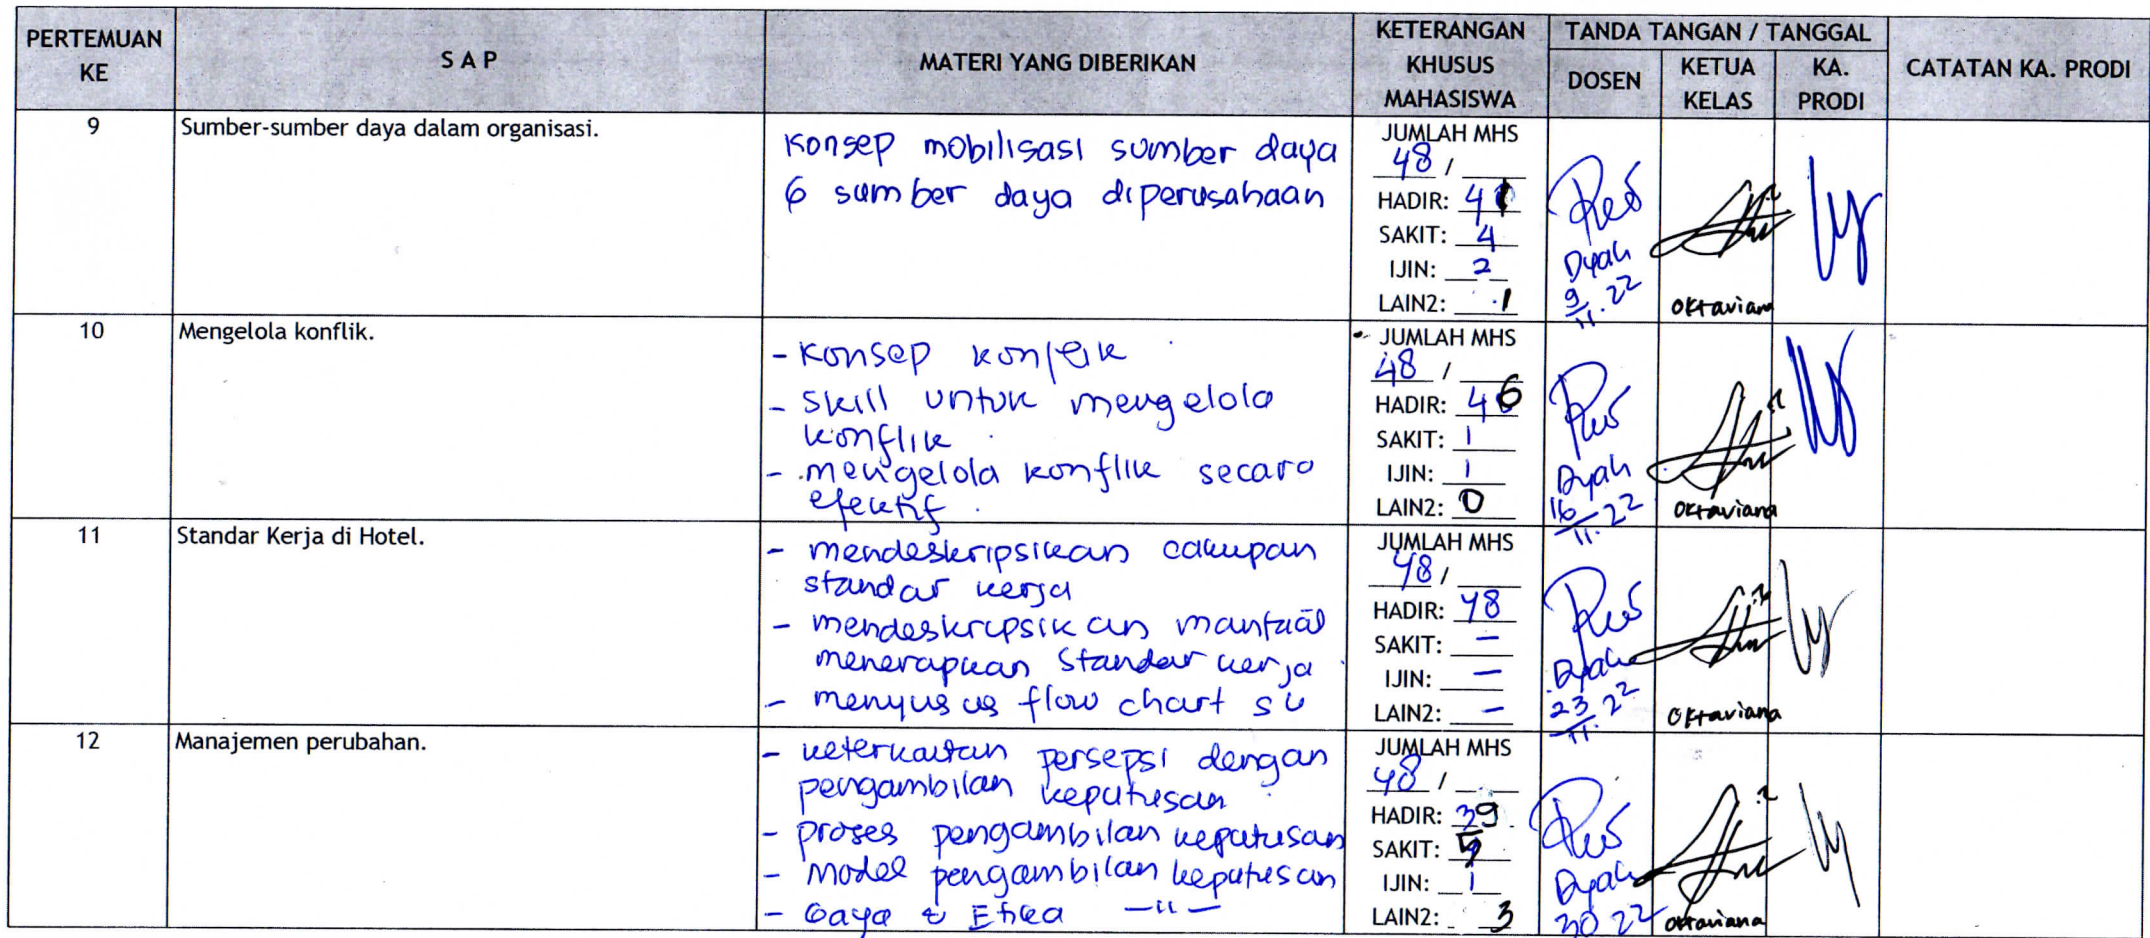 PERTEMUAN KE
S A P
MATERI YANG DIBERIKAN
KETERANGAN KHUSUS MAHASISWA
TANDA TANGAN / TANGGAL
DOSEN
KETUA KELAS
KA. PRODI
CATATAN KA. PRODI
9
Sumber-sumber daya dalam organisasi.
Konsep mobilisasi sumber daya
6 sumber daya diperusahaan
JUMLAH MHS
48 /
HADIR: 41
SAKIT: 4
IJIN: 2
LAIN2: 1
Dyah
9/11.22
Oktaviana
10
Mengelola konflik.
- Konsep konflik
- Skill untuk mengelola
konflik
- mengelola konflik secara
efektif
JUMLAH MHS
48 /
HADIR: 46
SAKIT: 1
IJIN: 1
LAIN2: 0
Dyah
16/11.22
Oktaviana
11
Standar Kerja di Hotel.
- mendeskripsikan cakupan
standar kerja
- mendeskripsikan manfaat
menerapkan standar kerja
- menyusun flow chart SK
JUMLAH MHS
48 /
HADIR: 48
SAKIT: –
IJIN: –
LAIN2: –
Dyah
23/11.22
Oktaviana
12
Manajemen perubahan.
- keterkaitan persepsi dengan
pengambilan keputusan
- proses pengambilan keputusan
- Model pengambilan keputusan
- Gaya & Etika —"—
JUMLAH MHS
48 /
HADIR: 39
SAKIT: 5
IJIN: 1
LAIN2: 3
Dyah
30 22
Oktaviana